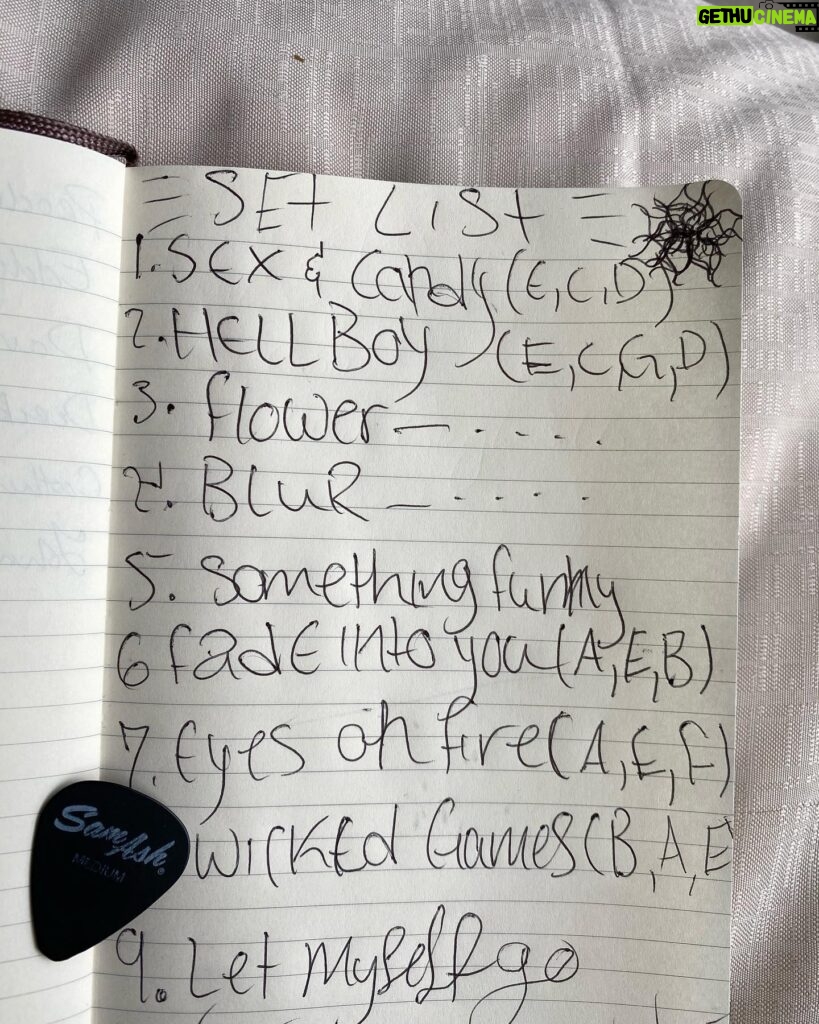 GETHUCINEMA
= SEt LiSt =
1. SEX & Candy (E,C,D)
2. HELLBoy (E,C,G,D)
3. flower — . . . .
4. BLUR — . . . . .
5. Something funny
6 fadE into you (A,E,B)
7. Eyes on fire (A,E,F)
WickEd Games (B,A,E
9. Let Myself go
Sam Ash®
MEDIUM